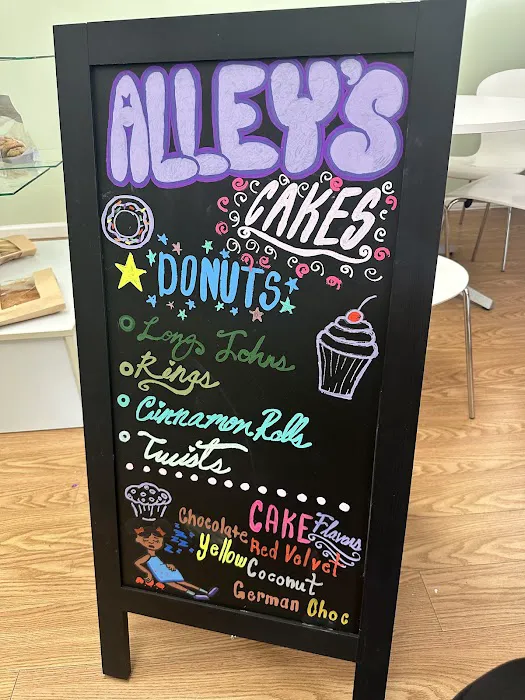 ALLEY'S
CAKES
DONUTS
Long Johns
Rings
Cinnamon Rolls
Twists
CAKE Flavors
Chocolate Red Velvet
Yellow Coconut
German Choc